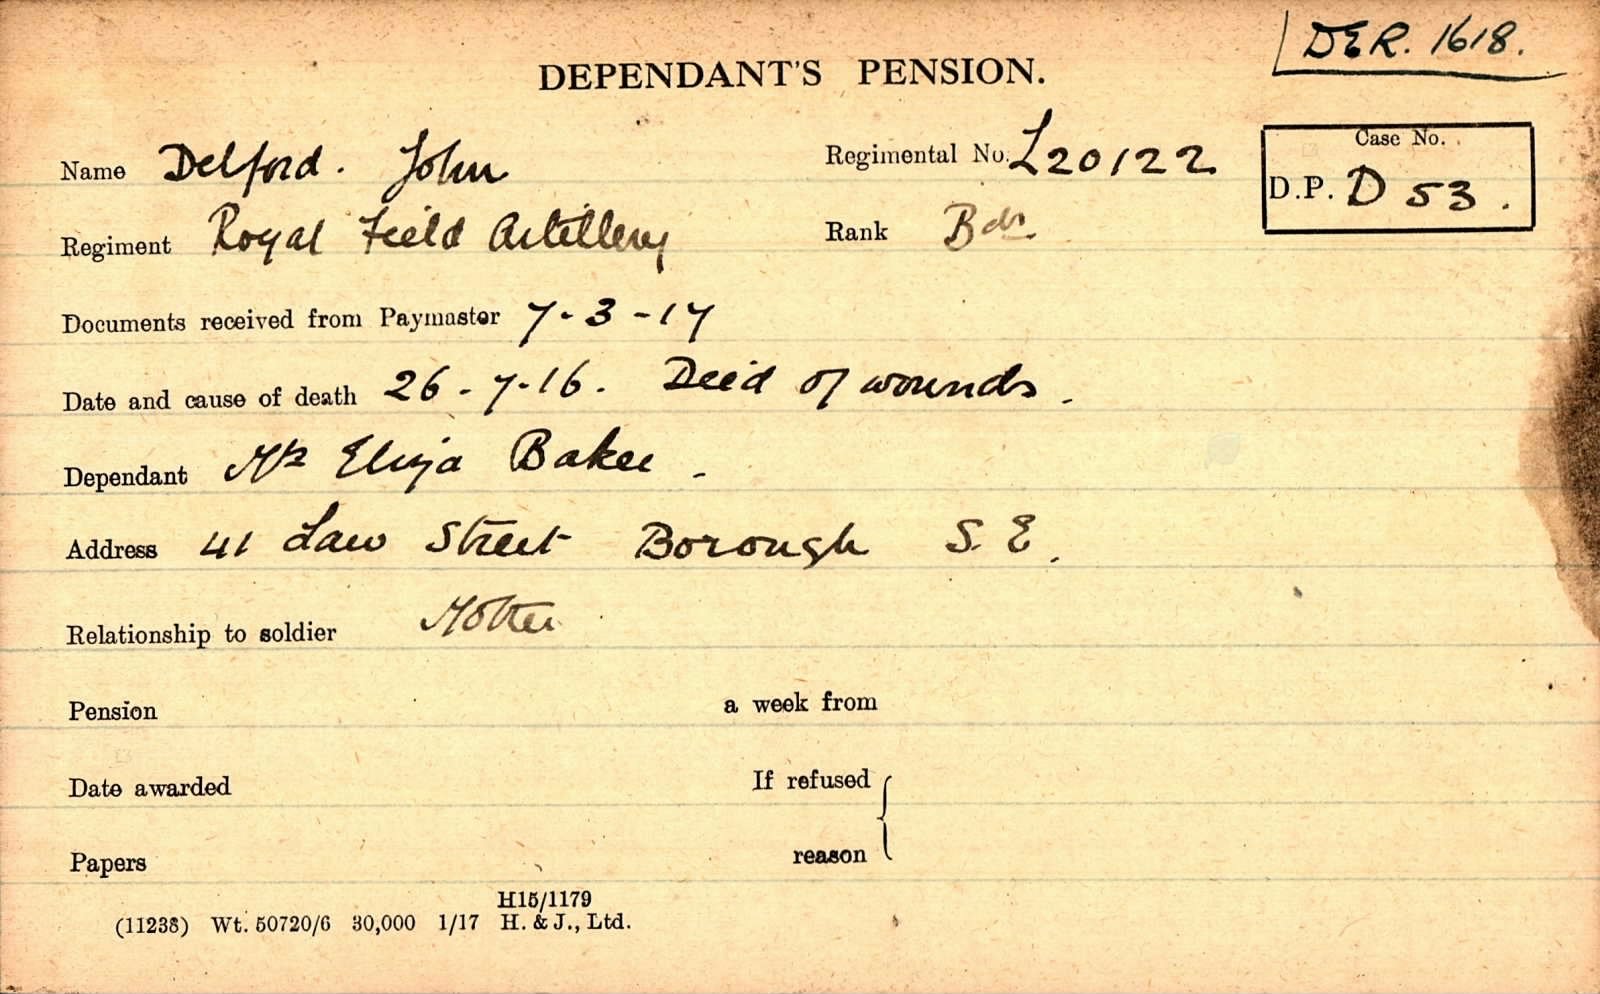 DER. 1618.
DEPENDANT'S PENSION.
Name Delford. John Regimental No. L20122 Case No.
D.P. D 53.
Regiment Royal Field Artillery Rank Bdr.
Documents received from Paymaster 7-3-17
Date and cause of death 26-7-16. Deid of wounds.
Dependant Mrs Eliza Baker.
Address 41 Law Street Borough S.E.
Relationship to soldier Mother
Pension a week from
Date awarded If refused
Papers reason
H15/1179
(11238) Wt. 50720/6 30,000 1/17 H. & J., Ltd.